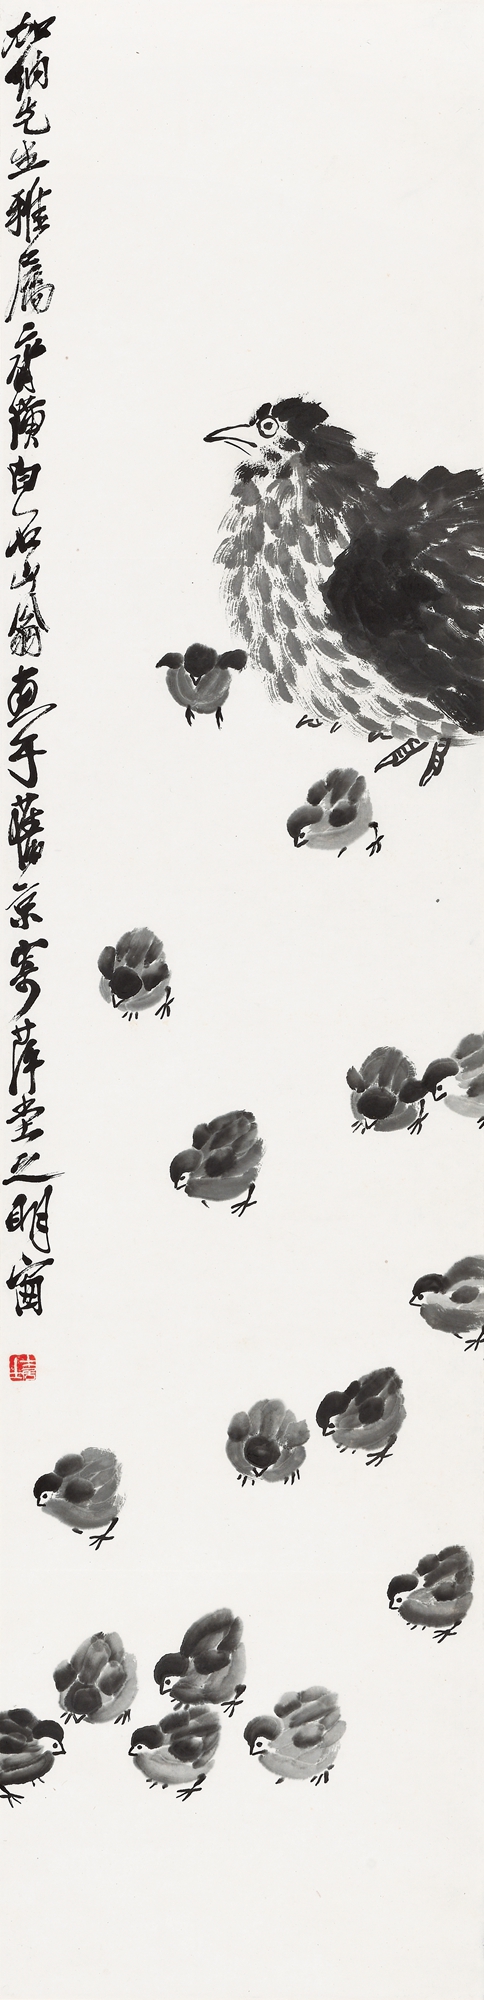 加纳先生雅属齊璜白石山翁畫于舊京寄萍堂之明窗